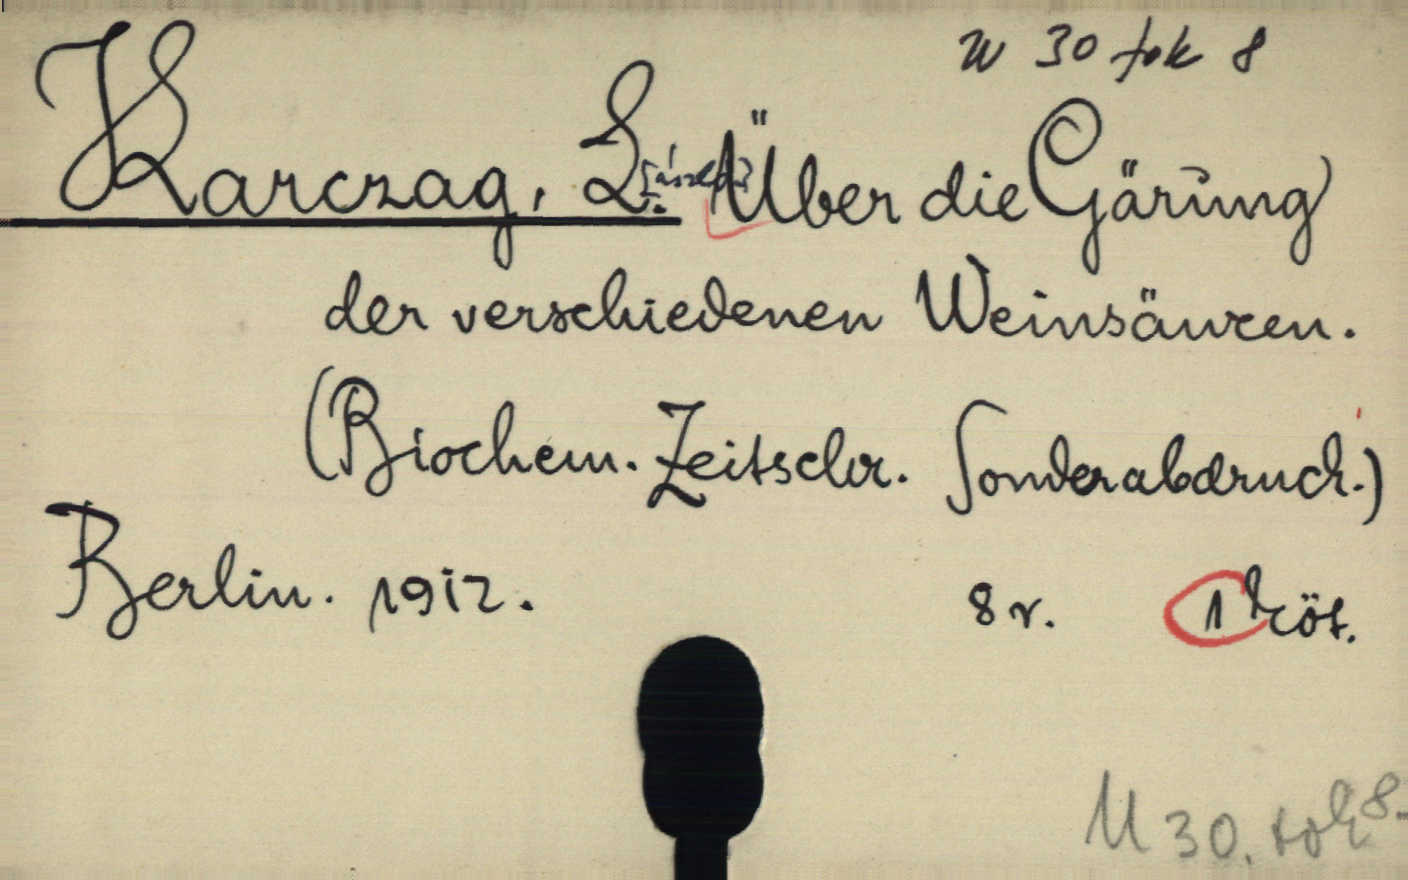 W 30 tok 8
Karczag, L. [László] Über die Gärung
der verschiedenen Weinsäuren.
(Biochem. Zeitschr. Sonderabdruck.)
Berlin. 1912. 8r. 1 köt.
M 30. tok 8.